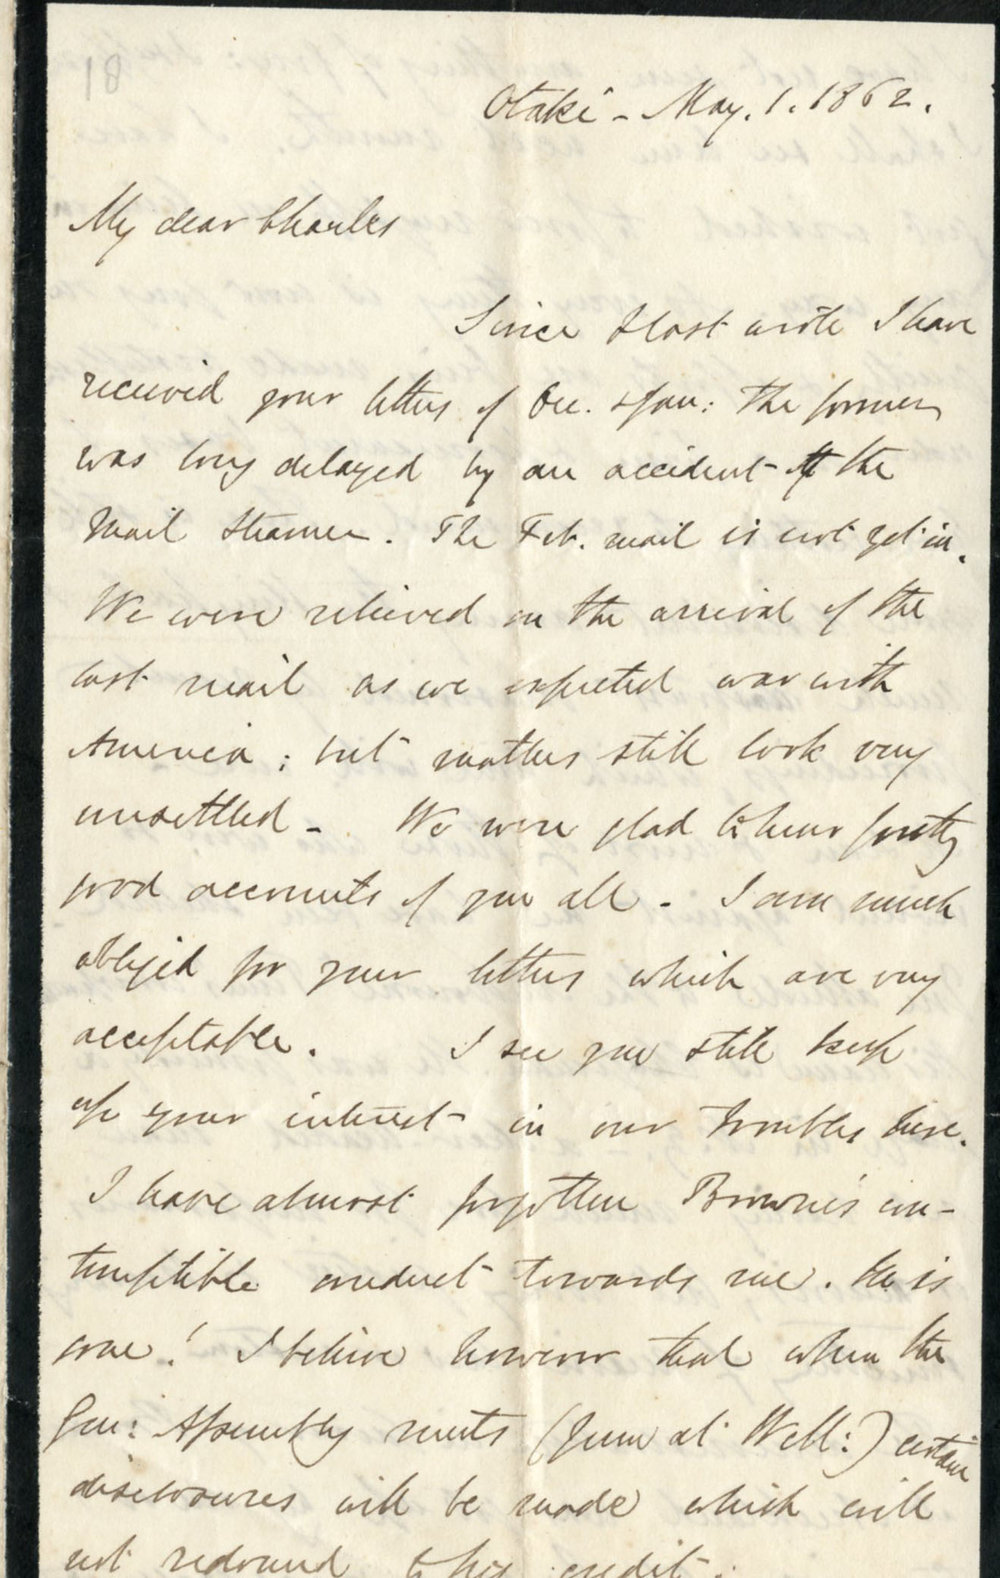 81
Otaki - May. 1. 1862.
My dear Charles
Since I last wrote I have
received your letters of Dec. & Jan: The former
was long delayed by an accident to the
Mail Steamer. The Feb. mail is not yet in.
We were relieved on the arrival of the
last mail as we expected war with
America; but matters still look very
unsettled - We were glad to hear pretty
good accounts of you all - I am much
obliged for your letters which are very
acceptable. I see you still keep
up your interest in our troubles here.
I have almost forgotten Browne's con-
temptible conduct towards me. He is
gone! I believe however that when the
Gen: Assembly meets (June at Well:) certain
disclosures will be made which will
not redound to his credit.